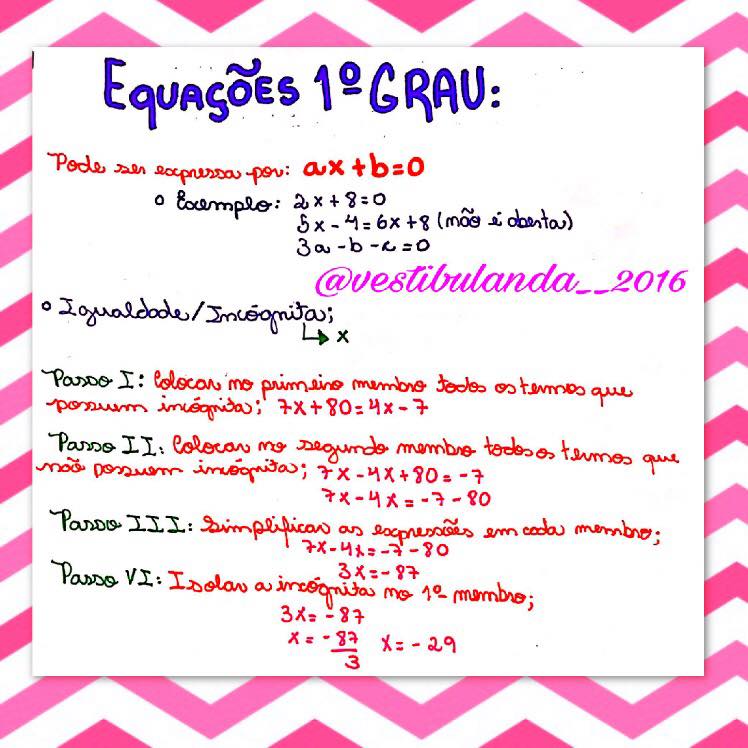 EQUAÇÕES 1º GRAU:
Pode ser expressa por: ax+b=0
o Exemplo: 2x+8=0
5x-4=6x+8 (não é aberta)
3a-b-c=0
@vestibulanda__2016
o Igualdade/Incógnita;
↳ x
Passo I: Colocar no primeiro membro todos os termos que
possuem incógnita; 7x+80=4x-7
Passo II: Colocar no segundo membro todos os termos que
não possuem incógnita; 7x-4x+80=-7
7x-4x=-7-80
Passo III: Simplificar as expressões em cada membro;
7x-4x=-7-80
3x=-87
Passo VI: Isolar a incógnita no 1º membro;
3x=-87
x=-87 x=-29
3